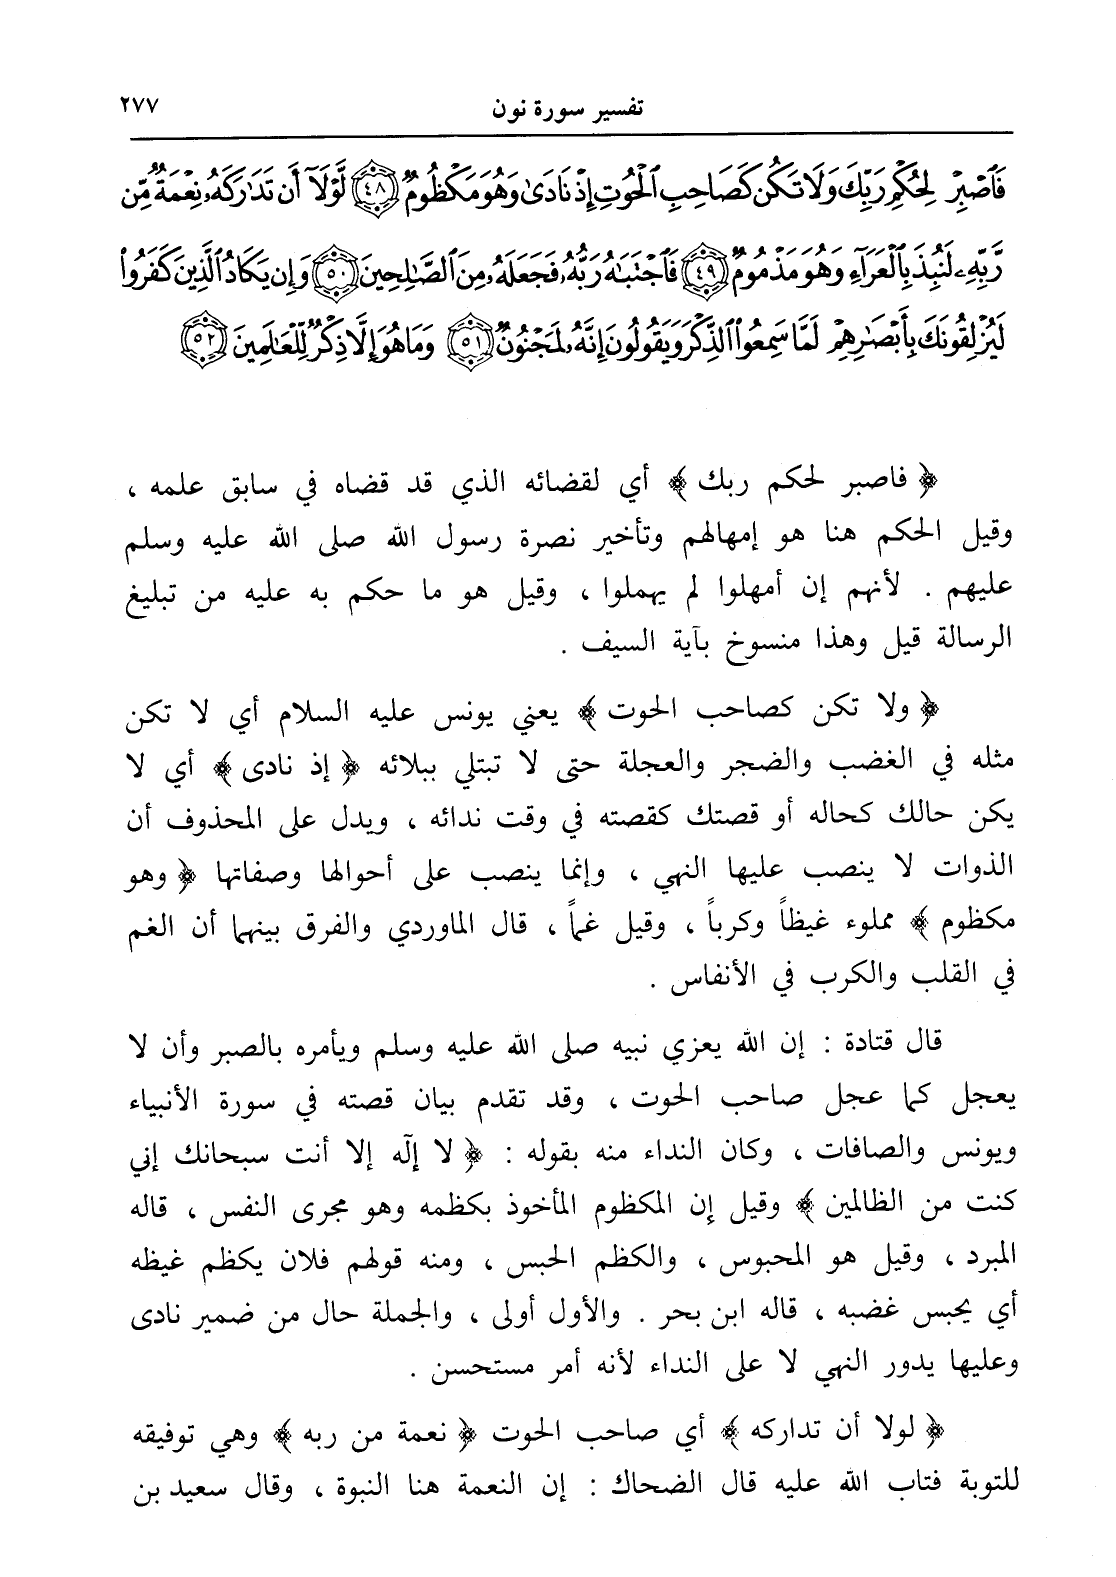 تفسير سورة نون ٢٧٧
فَٱصۡبِرۡ لِحُكۡمِ رَبِّكَ وَلَا تَكُن كَصَاحِبِ ٱلۡحُوتِ إِذۡ نَادَىٰ وَهُوَ مَكۡظُومٌ ٤٨ لَّوۡلَآ أَن تَدَٰرَكَهُۥ نِعۡمَةٌ مِّن
رَّبِّهِۦ لَنُبِذَ بِٱلۡعَرَآءِ وَهُوَ مَذۡمُومٌ ٤٩ فَٱجۡتَبَٰهُ رَبُّهُۥ فَجَعَلَهُۥ مِنَ ٱلصَّٰلِحِينَ ٥٠ وَإِن يَكَادُ ٱلَّذِينَ كَفَرُواْ
لَيُزۡلِقُونَكَ بِأَبۡصَٰرِهِمۡ لَمَّا سَمِعُواْ ٱلذِّكۡرَ وَيَقُولُونَ إِنَّهُۥ لَمَجۡنُونٌ ٥١ وَمَا هُوَ إِلَّا ذِكۡرٌ لِّلۡعَٰلَمِينَ ٥٢
﴿ فاصبر لحكم ربك ﴾ أي لقضائه الذي قد قضاه في سابق علمه ،
وقيل الحكم هنا هو إمهالهم وتأخير نصرة رسول الله صلى الله عليه وسلم
عليهم . لأنهم إن أمهلوا لم يهملوا ، وقيل هو ما حكم به عليه من تبليغ
الرسالة قيل وهذا منسوخ بآية السيف .
﴿ ولا تكن كصاحب الحوت ﴾ يعني يونس عليه السلام أي لا تكن
مثله في الغضب والضجر والعجلة حتى لا تبتلي ببلائه ﴿ إذ نادى ﴾ أي لا
يكن حالك كحاله أو قصتك كقصته في وقت ندائه ، ويدل على المحذوف أن
الذوات لا ينصب عليها النهي ، وإنما ينصب على أحوالها وصفاتها ﴿ وهو
مكظوم ﴾ مملوء غيظاً وكرباً ، وقيل غماً ، قال الماوردي والفرق بينهما أن الغم
في القلب والكرب في الأنفاس .
قال قتادة : إن الله يعزي نبيه صلى الله عليه وسلم ويأمره بالصبر وأن لا
يعجل كما عجل صاحب الحوت ، وقد تقدم بيان قصته في سورة الأنبياء
ويونس والصافات ، وكان النداء منه بقوله : ﴿ لا إلٓه إلا أنت سبحانك إني
كنت من الظالمين ﴾ وقيل إن المكظوم المأخوذ بكظمه وهو مجرى النفس ، قاله
المبرد ، وقيل هو المحبوس ، والكظم الحبس ، ومنه قولهم فلان يكظم غيظه
أي يحبس غضبه ، قاله ابن بحر . والأول أولى ، والجملة حال من ضمير نادى
وعليها يدور النهي لا على النداء لأنه أمر مستحسن .
﴿ لولا أن تداركه ﴾ أي صاحب الحوت ﴿ نعمة من ربه ﴾ وهي توفيقه
للتوبة فتاب الله عليه قال الضحاك : إن النعمة هنا النبوة ، وقال سعيد بن